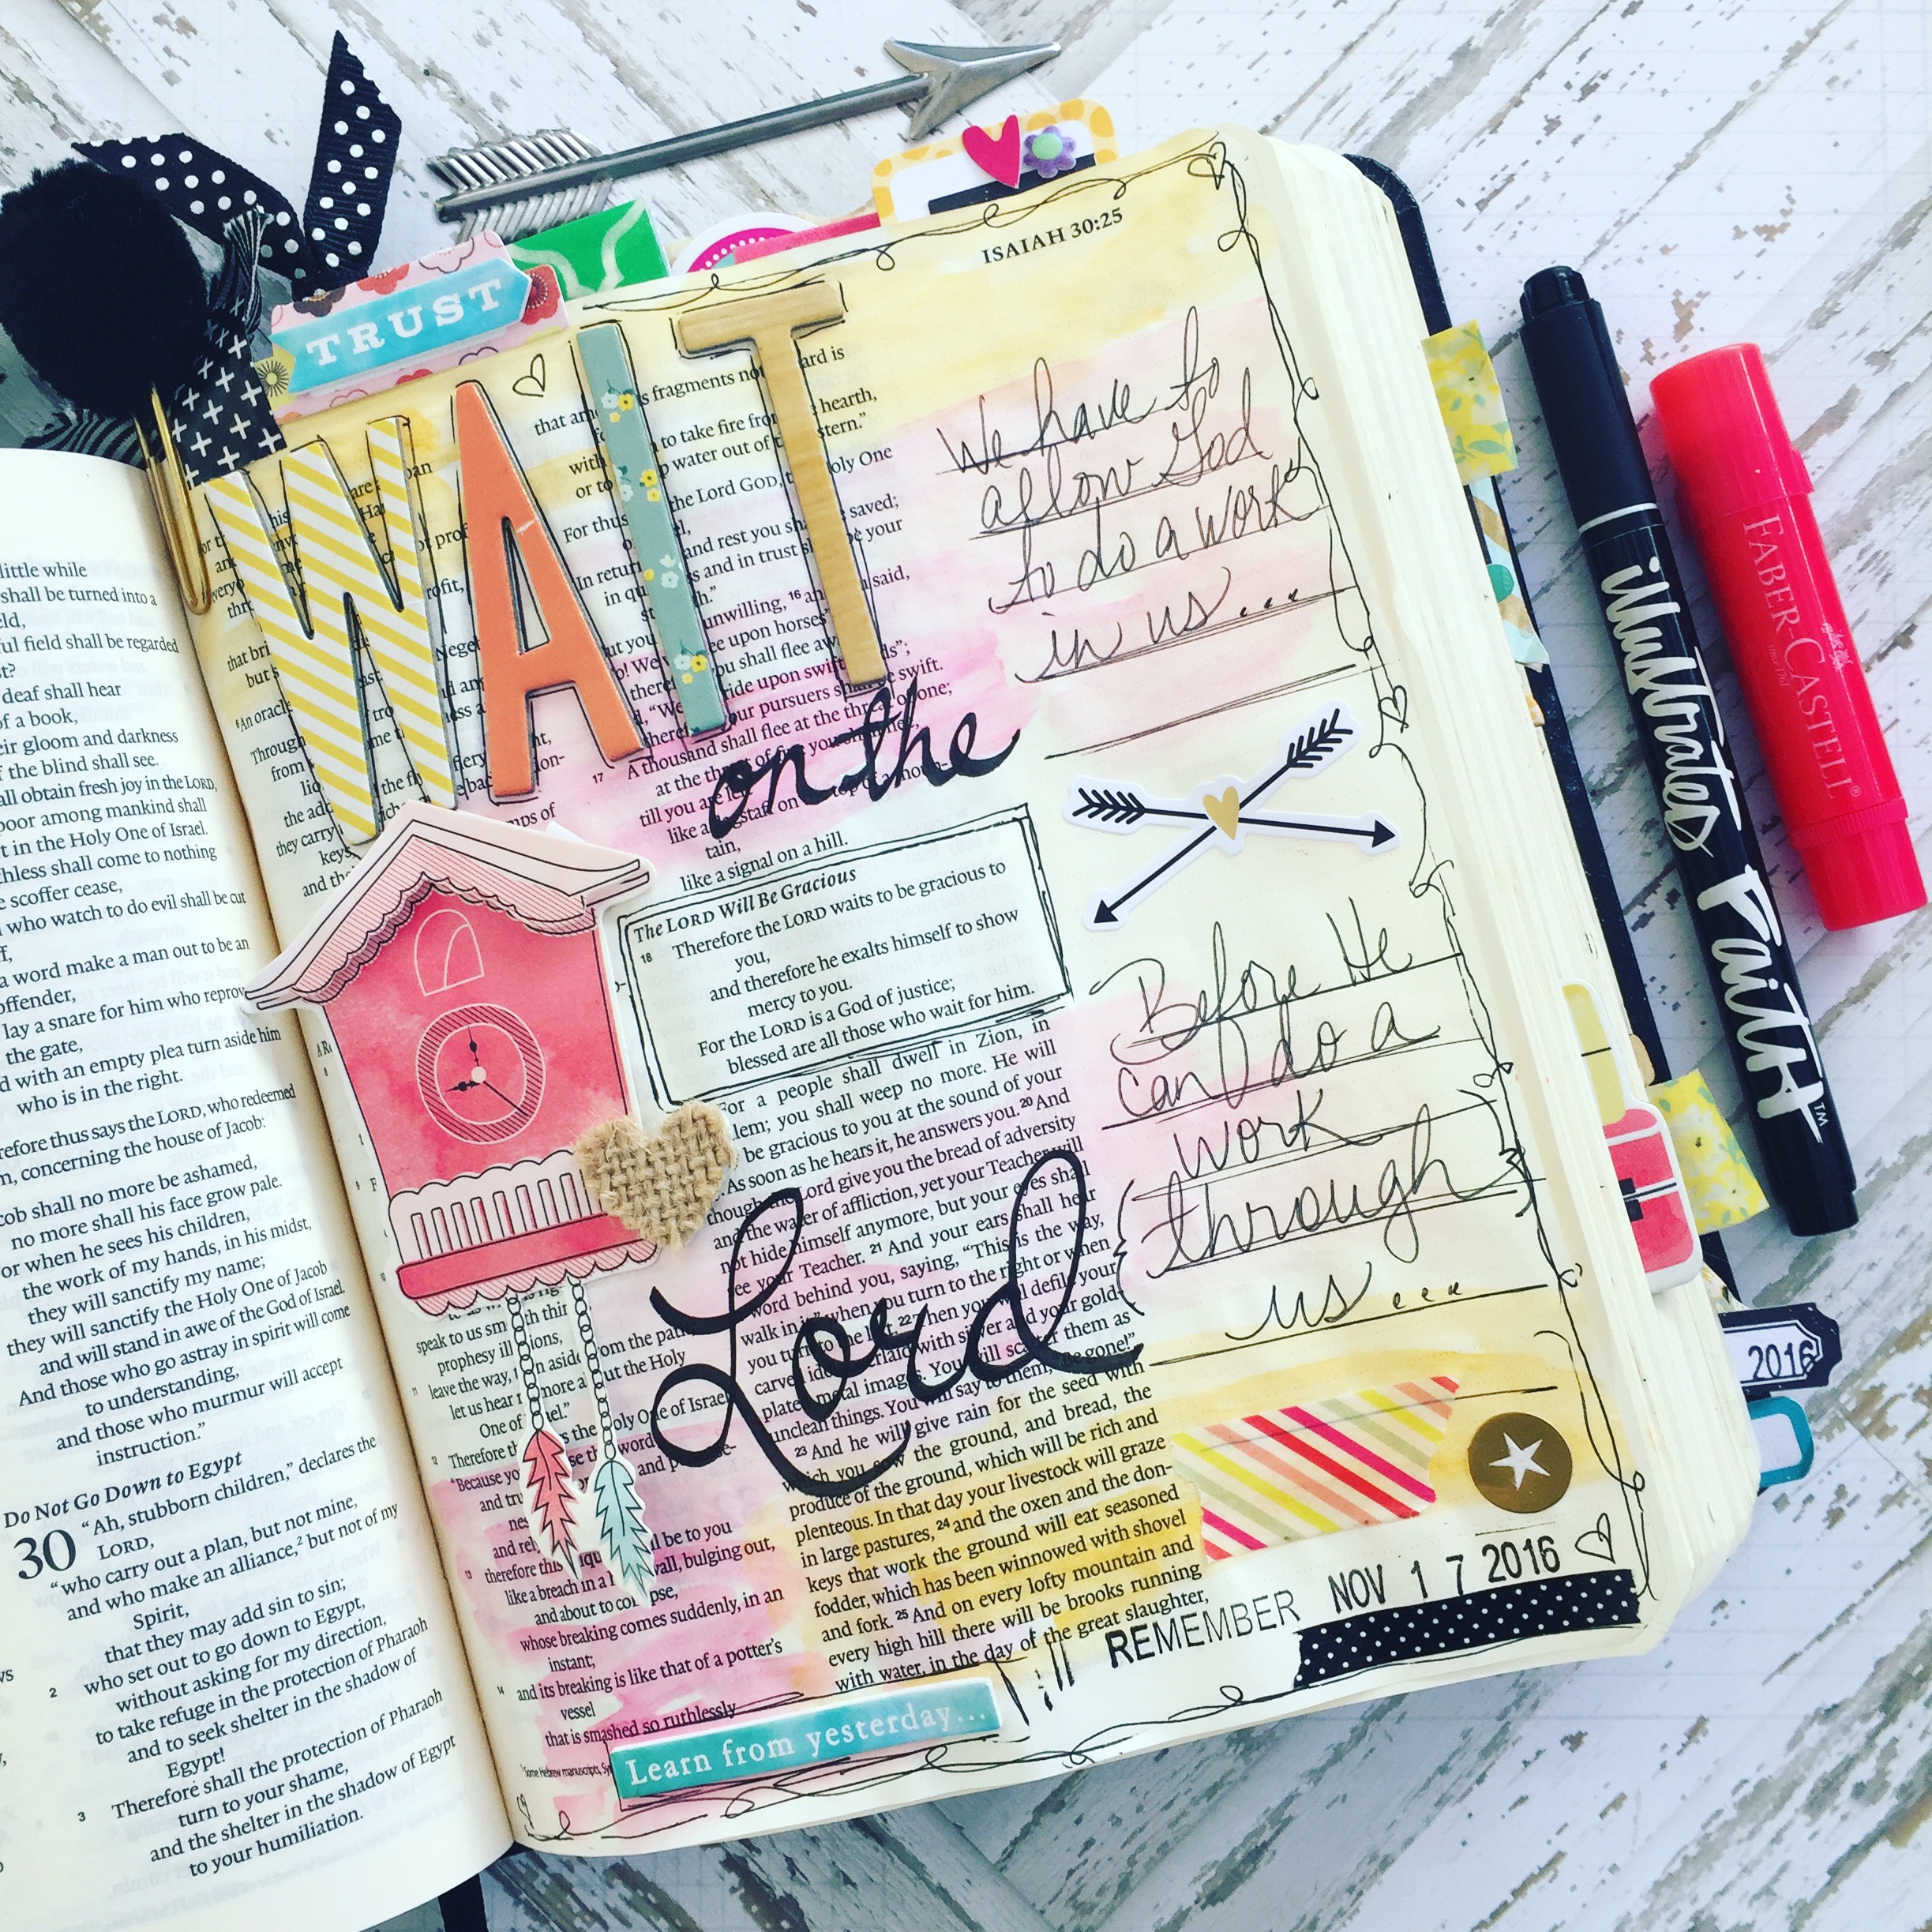 TRUST
ISAIAH 30:25
WAIT
on the
Lord
We have to
allow God
to do a work
in us...
Before He
can do a
work
through
us...
REMEMBER NOV 17 2016
Learn from yesterday...
2016
illustrated Faith™
FABER-CASTELL®
since 1761
little while
shall be turned into a
ful field shall be regarded
deaf shall hear
of a book,
gloom and darkness
the blind shall see.
obtain fresh joy in the LORD,
poor among mankind shall
in the Holy One of Israel.
shall come to nothing
scoffer cease,
who watch to do evil shall be cut
a word make a man out to be an
offender,
lay a snare for him who
the gate,
with an empty plea turn aside him
who is in the right.
thus says the LORD, who redeemed
concerning the house of Jacob:
shall no more be ashamed,
no more shall his face grow pale.
or when he sees his children,
the work of my hands, in his midst,
they will sanctify my name;
they will sanctify the Holy One of Jacob
and will stand in awe of the God of Israel.
And those who go astray in spirit will come
to understanding,
and those who murmur will accept
instruction.”
Do Not Go Down to Egypt
30 “Ah, stubborn children,” declares the
LORD,
“who carry out a plan, but not mine,
and who make an alliance,² but not of my
Spirit,
that they may add sin to sin;
2 who set out to go down to Egypt,
without asking for my direction,
to take refuge in the protection of Pharaoh
and to seek shelter in the shadow of
Egypt!
3 Therefore shall the protection of Pharaoh
turn to your shame,
and the shelter in the shadow of Egypt
to your humiliation.
speak to us
prophesy
leave the way,
let us hear more
One of
Therefore
“Because
be to you
wall, bulging out,
like a breach in a
and about to
whose breaking comes suddenly, in an
instant;
14 and its breaking is like that of a potter’s
vessel
that is smashed so ruthlessly
fragments
hearth,
to take fire
water out of
the Lord GOD,
Holy One
For thus
and rest you saved;
and in trust your
unwilling, 16
upon horses”
you shall flee
ride upon
your pursuers shall be swift.
17 A thousand shall flee at the
at the
till you are left
like a flagstaff on top of a moun-
tain,
like a signal on a hill.
The LORD Will Be Gracious
18 Therefore the LORD waits to be gracious to
you,
and therefore he exalts himself to show
mercy to you.
For the LORD is a God of justice;
blessed are all those who wait for him.
For a people shall dwell in Zion, in
you shall weep no more. He will
be gracious to you at the sound of your
As soon as he hears it, he answers you. 20 And
though the Lord give you the bread of adversity
and the water of affliction, yet your Teacher will
not hide himself anymore, but your eyes shall
see your Teacher. 21 And your ears shall hear
word behind you, saying, “This is the way,
walk in it,” when you turn to the right or when
you turn to the left. 22 Then you will defile your
carved idols overlaid with silver and your gold-
plated metal images. You will scatter them as
unclean things. You will say to them, “Be gone!”
23 And he will give rain for the seed with
which you sow the ground, and bread, the
produce of the ground, which will be rich and
plenteous. In that day your livestock will graze
in large pastures, 24 and the oxen and the don-
keys that work the ground will eat seasoned
fodder, which has been winnowed with shovel
and fork. 25 And on every lofty mountain and
every high hill there will be brooks running
with water, in the day of the great slaughter,